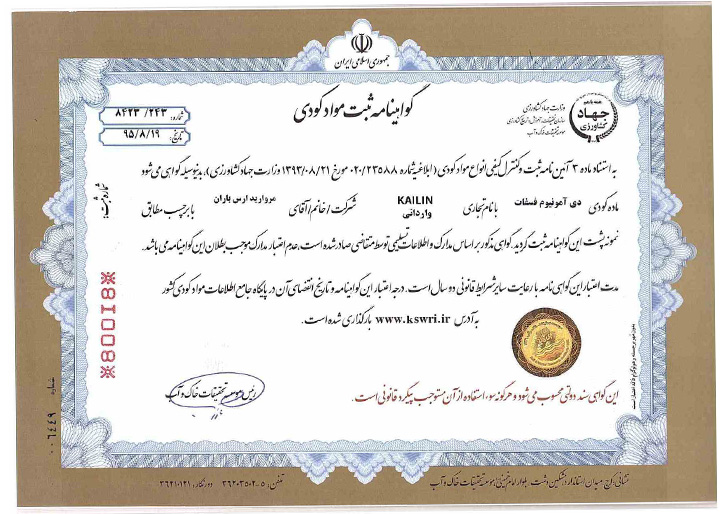 جمهوری اسلامی ایران
گواهینامه ثبت مواد کودی
وزارت جهاد کشاورزی
سازمان تحقیقات، آموزش و ترویج کشاورزی
موسسه تحقیقات خاک و آب
جهاد
کشاورزی
شماره: ۸۴۲۳ / ۲۴۳
تاریخ: ۹۵/۸/۱۹
به استناد ماده ۳ آئین نامه ثبت و کنترل کیفی انواع مواد کودی (ابلاغیه شماره ۰۲۰/۲۳۵۸۸ مورخ ۱۳۹۳/۰۸/۲۱ وزارت جهاد کشاورزی)، بدینوسیله گواهی می شود
ماده کودی دی آمونیوم فسفات با نام تجاری KAILIN وارداتی شرکت / خانم / آقای مروارید ارس باران با برچسب مطابق
نمونه پشت این گواهینامه ثبت گردید. گواهی مذکور بر اساس مدارک و اطلاعات تسلیمی توسط متقاضی صادر شده است، عدم اعتبار مدارک موجب بطلان این گواهینامه می باشد.
مدت اعتبار این گواهی نامه با رعایت سایر شرایط قانونی دو سال است. درجه اعتبار این گواهینامه و تاریخ انقضای آن در پایگاه جامع اطلاعات مواد کودی کشور
به آدرس www.kswri.ir بارگذاری شده است.
شماره ثبت:
※80018※
رئیس موسسه تحقیقات خاک و آب
این گواهی سند دولتی محسوب می شود و هرگونه سوء استفاده از آن مستوجب پیگرد قانونی است.
بدون مهر برجسته و هولوگرام فاقد اعتبار است
شماره ۰۰۶۴۴۹
نشانی: کرج، میدان استاندارد، مشکین دشت، بلوار امام خمینی، موسسه تحقیقات خاک و آب
تلفن: ۵-۳۶۲۰۳۵۰۲ دورنگار: ۳۶۲۱۰۱۲۱